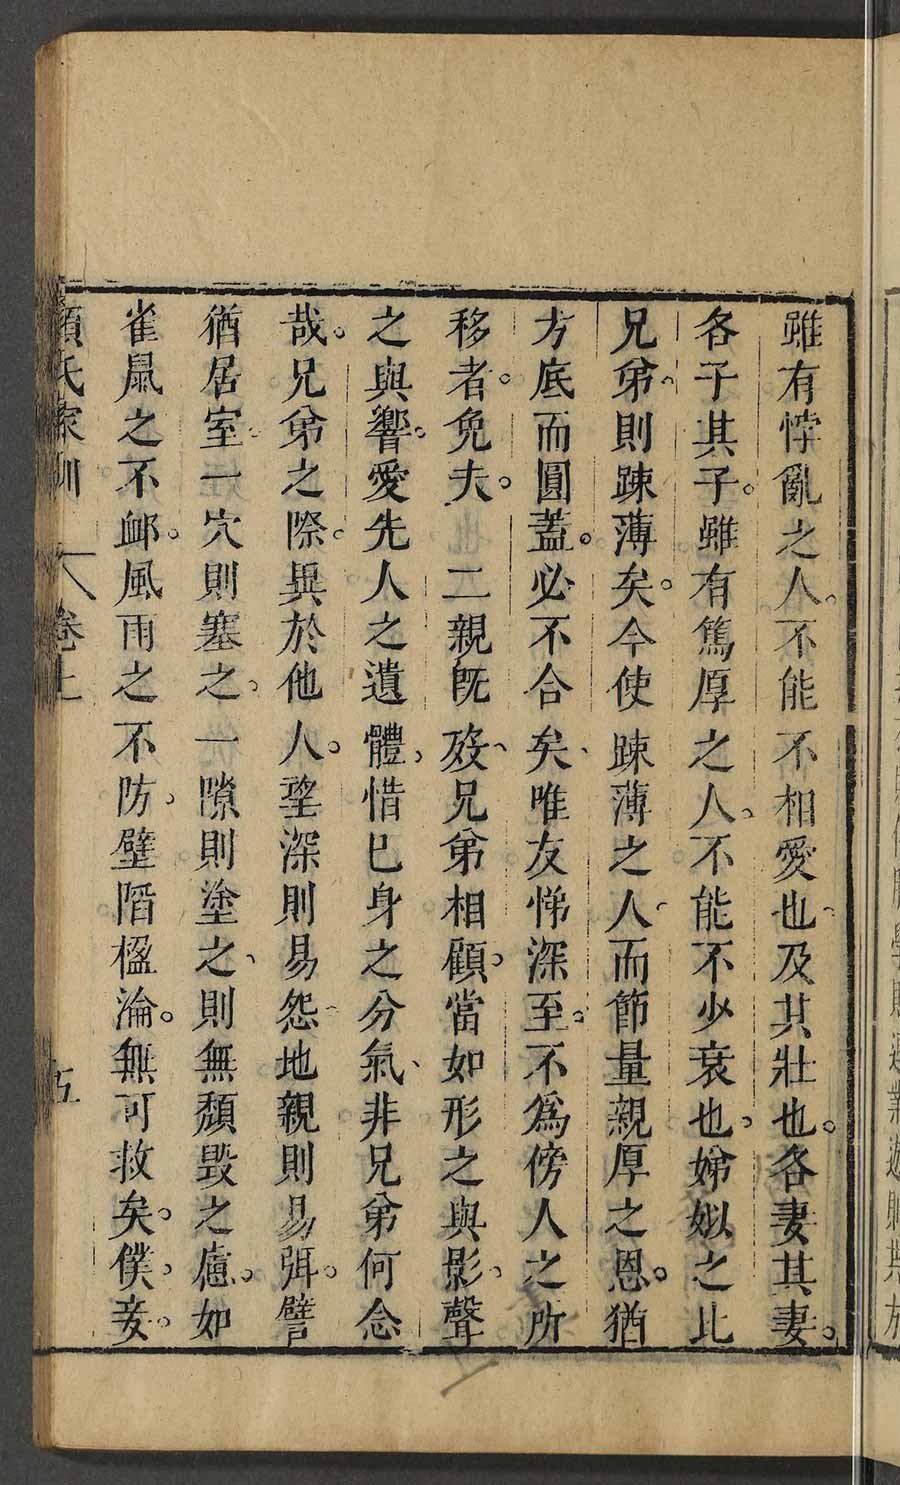 雖有悖亂之人不能不相愛也及其壯也各妻其妻
各子其子雖有篤厚之人不能不少衰也娣姒之比
兄弟則踈薄矣今使踈薄之人而節量親厚之恩猶
方底而圓蓋必不合矣唯友悌深至不爲傍人之所
移者免夫二親旣歿兄弟相顧當如形之與影聲
之與響愛先人之遺體惜已身之分氣非兄弟何念
哉兄弟之際異於他人望深則易怨地親則易弭譬
猶居室一穴則塞之一隙則塗之則無頹毀之慮如
雀鼠之不䘏風雨之不防壁陷楹淪無可救矣僕妾
顏氏家訓 卷上 五